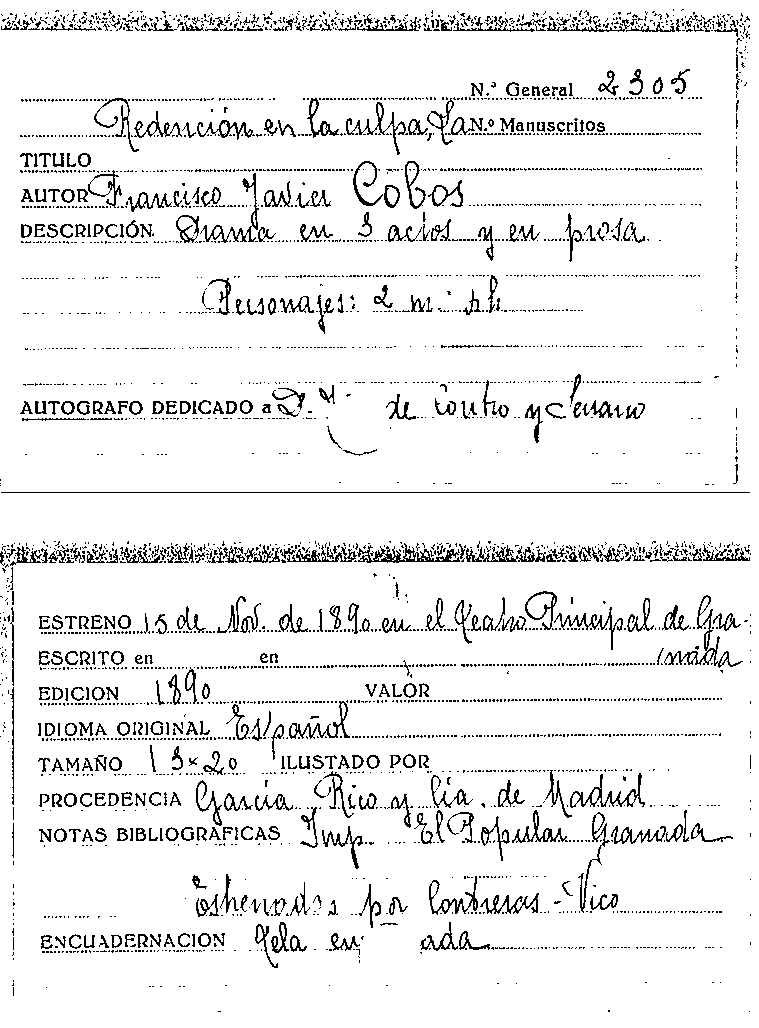 N.º General 2305
Redención en la culpa, La N.º Manuscritos
TITULO
AUTOR Francisco Javier Cobos
DESCRIPCIÓN Drama en 3 actos y en prosa
Personajes: 2 m.
AUTOGRAFO DEDICADO a D. de Contro y Serrano
ESTRENO 15 de Nov. de 1890 en el Teatro Principal de Gra-
ESCRITO en en nada
EDICION 1890 VALOR
IDIOMA ORIGINAL Español
TAMAÑO 13×20 ILUSTADO POR
PROCEDENCIA García Rico y Cía. de Madrid
NOTAS BIBLIOGRAFICAS Imp. El Popular Granada
Estrenada por Contreras - Vico
ENCUADERNACION Tela